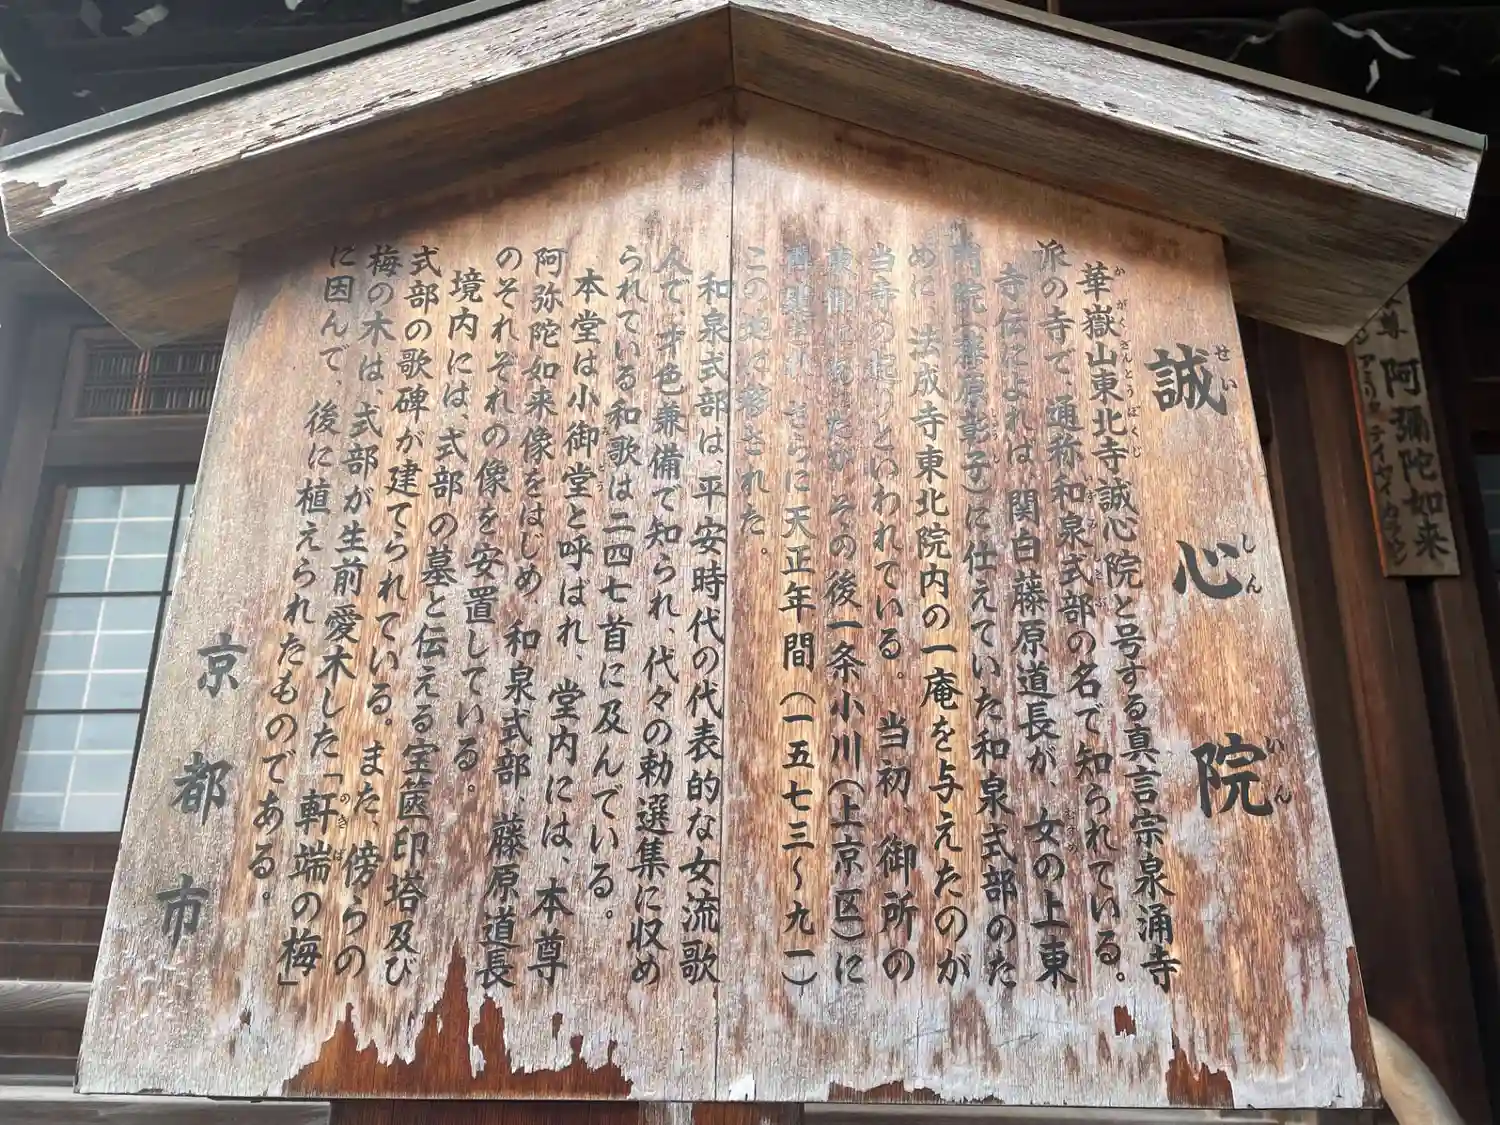 誠心院
せいしんいん
華嶽山東北寺誠心院と号する真言宗泉涌寺
かがくさんとうぼくじ
派の寺で、通称和泉式部の名で知られている。
いずみしきぶ
寺伝によれば関白藤原道長が、女の上東
むすめ
門院（藤原彰子）に仕えていた和泉式部のた
めに、法成寺東北院内の一庵を与えたのが
当寺の起りといわれている。当初、御所の
東側にあったが、その後一条小川（上京区）に
再建され、さらに天正年間（一五七三〜九一）
この地に移された。
和泉式部は、平安時代の代表的な女流歌
人で、才色兼備で知られ、代々の勅選集に収め
られている和歌は二四七首に及んでいる。
本堂は小御堂と呼ばれ、堂内には、本尊
阿弥陀如来像をはじめ、和泉式部、藤原道長
のそれぞれの像を安置している。
境内には、式部の墓と伝える宝篋印塔及び
式部の歌碑が建てられている。また、傍らの
梅の木は、式部が生前愛木した「軒端の梅」
のきば
に因んで、後に植えられたものである。
京都市
尊 阿彌陀如来